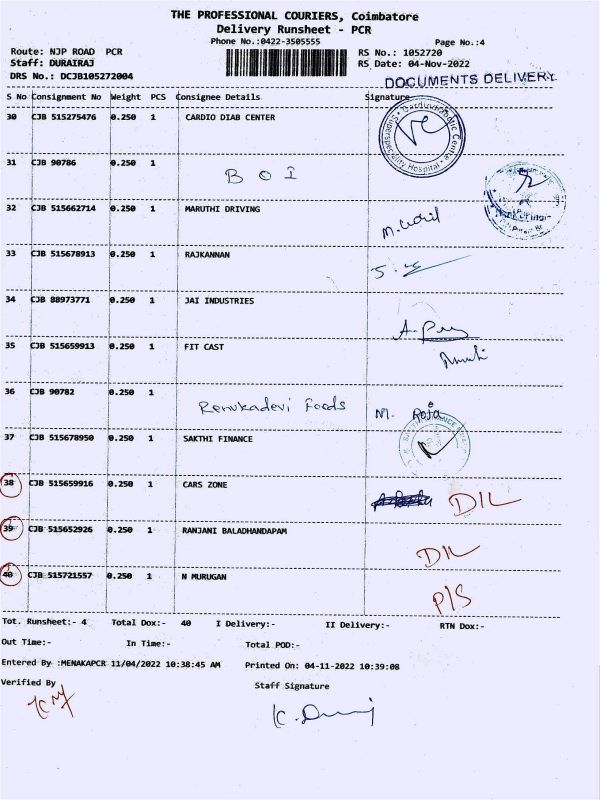 THE PROFESSIONAL COURIERS, Coimbatore
Delivery Runsheet - PCR
Phone No.:0422-3505555
Page No.:4
Route: NJP ROAD PCR
RS No.: 1052720
Staff: DURAIRAJ
RS Date: 04-Nov-2022
DRS No.: DCJB105272004
DOCUMENTS DELIVERY
S No Consignment No Weight PCS Consignee Details Signature
30 CJB 515275476 0.250 1 CARDIO DIAB CENTER
Superspeciality Hospital
31 CJB 90786 0.250 1 BOI
32 CJB 515662714 0.250 1 MARUTHI DRIVING
33 CJB 515678913 0.250 1 RAJKANNAN
34 CJB 88973771 0.250 1 JAI INDUSTRIES
35 CJB 515659913 0.250 1 FIT CAST
36 CJB 90782 0.250 1 Renukadevi Foods M. Raja
37 CJB 515678950 0.250 1 SAKTHI FINANCE
38 CJB 515659916 0.250 1 CARS ZONE DIL
39 CJB 515652926 0.250 1 RANJANI BALADHANDAPAM DIL
40 CJB 515721557 0.250 1 N MURUGAN P/S
Tot. Runsheet:- 4 Total Dox:- 40 I Delivery:- II Delivery:- RTN Dox:-
Out Time:- In Time:- Total POD:-
Entered By :MENAKAPCR 11/04/2022 10:38:45 AM Printed On: 04-11-2022 10:39:08
Verified By Staff Signature